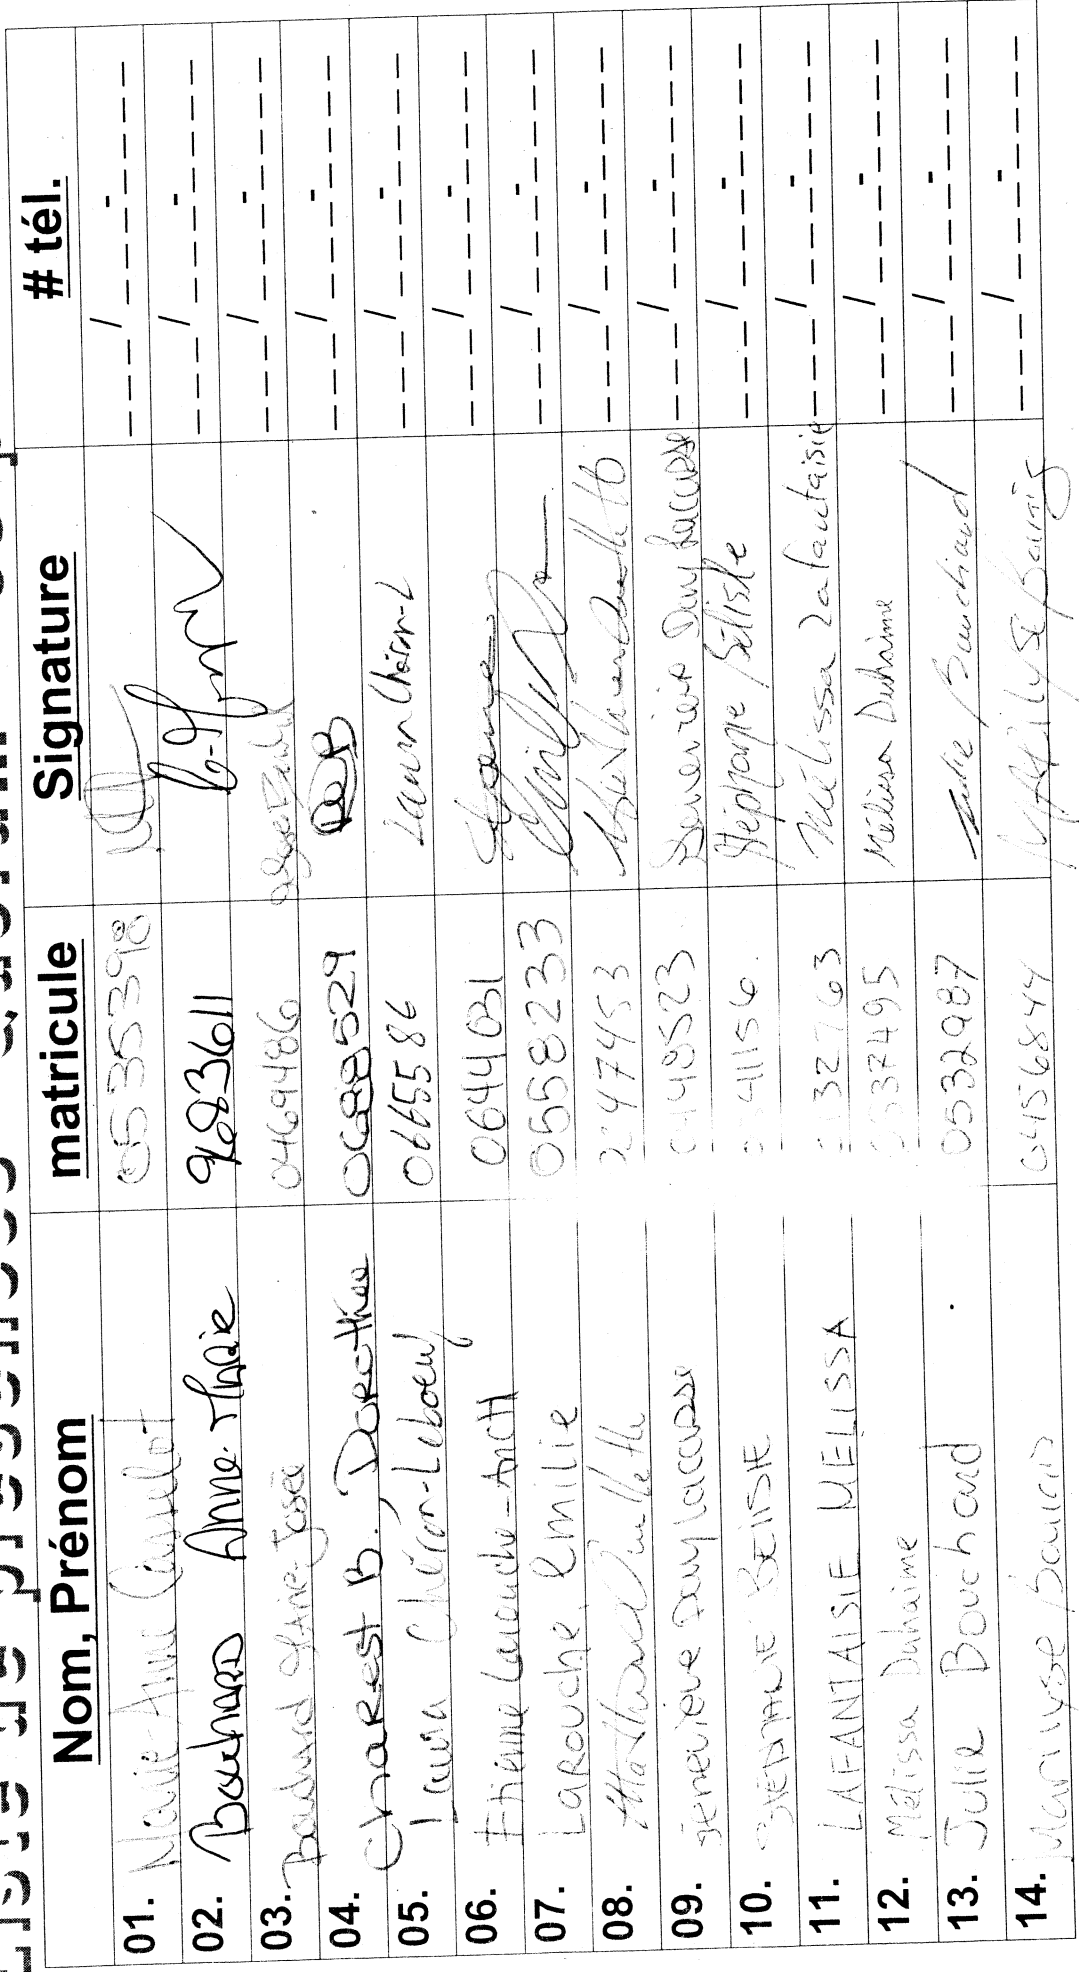 Liste de présences
Nom, Prénom matricule Signature # tél.
01. Marie-Anne 0535398 ____/____-____
02. Bouchard Anne-Marie 9683611 ____/____-____
03. Bouchard Marie-Josée 0469486 ____/____-____
04. Charest B. Dorothée 0688529 DCB ____/____-____
05. Laura Chéron-Leboeuf 0665586 Laura Chéron-L ____/____-____
06. Etienne Larouche- 0644031 ____/____-____
07. Larouche, Emilie 0558233 ____/____-____
08. 47453 ____/____-____
09. Geneviève Lacasse 48523 Geneviève Lacasse ____/____-____
10. STÉPHANIE BÉLISLE 41156 Stéphanie Bélisle ____/____-____
11. LAFANTAISIE MELISSA 32763 Mélissa Lafantaisie ____/____-____
12. Mélissa Duhaime 537495 Mélissa Duhaime ____/____-____
13. Julie Bouchard 0532987 Julie Bouchard ____/____-____
14. Marilyse 0456844 Marilyse ____/____-____